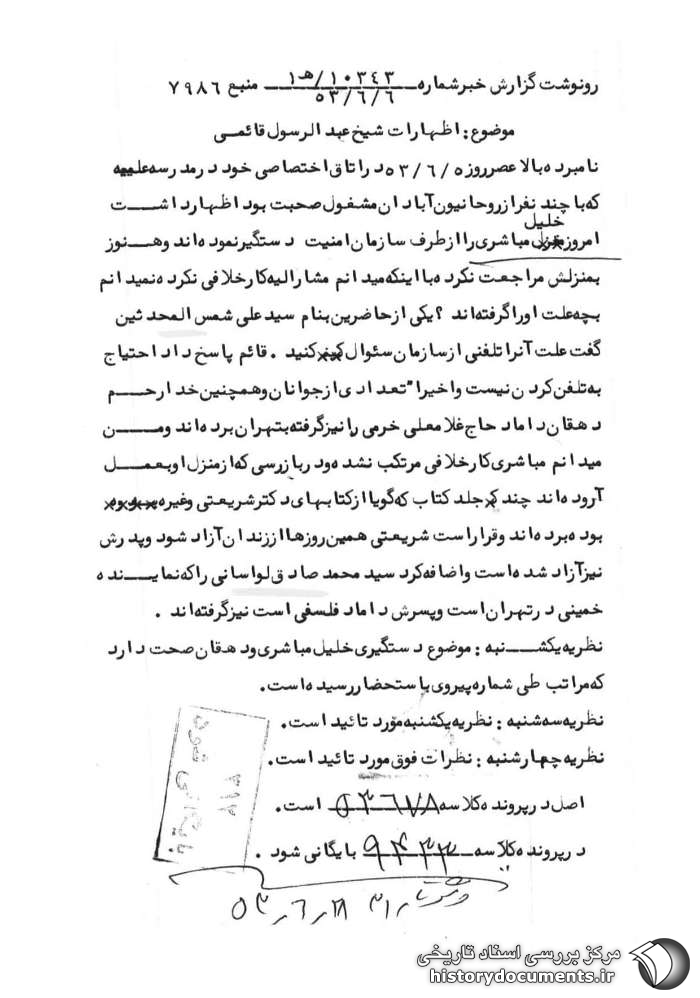 رونوشت گزارش خبر شماره ۱۰۳۴۳/ﻫ۱ منبع ۷۹۸۶
۵۳/۶/۶
موضوع: اظهارات شیخ عبدالرسول قائمی
نامبرده بالا عصر روز ۵۳/۶/۵ در اتاق اختصاصی خود در مدرسه علمیه
که با چند نفر از روحانیون آبادان مشغول صحبت بود اظهار داشت
خلیل
امروز مباشری را از طرف سازمان امنیت دستگیر نموده اند و هنوز
بمنزلش مراجعت نکرده با اینکه میدانم مشارالیه کار خلافی نکرده نمیدانم
بچه علت او را گرفته اند ؟ یکی از حاضرین بنام سید علی شمس المحدثین
گفت علت آنرا تلفنی از سازمان سئوال کنید . قائم پاسخ داد احتیاج
به تلفن کردن نیست و اخیرا" تعدادی از جوانان و همچنین خدارحم
دهقان داماد حاج غلامعلی خرمی را نیز گرفته بتهران برده اند و من
میدانم مباشری کار خلافی مرتکب نشده ودر بازرسی که از منزل او بعمل
آورده اند چند جلد کتاب که گویا از کتابهای دکتر شریعتی و غیره
بوده برده اند و قرار است شریعتی همین روزها از زندان آزاد شود و پدرش
نیز آزاد شده است و اضافه کرد سید محمد صادق لواسانی را که نماینده
خمینی در تهران است و پسرش داماد فلسفی است نیز گرفته اند .
نظریه یکشنبه : موضوع دستگیری خلیل مباشری و دهقان صحت دارد
که مراتب طی شماره پیروی باستحضار رسیده است.
نظریه سه شنبه : نظریه یکشنبه مورد تائید است.
نظریه چهارشنبه : نظرات فوق مورد تائید است.
اصل در پرونده کلاسه ۵۳۶۷۸ است.
در پرونده کلاسه ۹۴۳۳ بایگانی شود .
۳۱۲
بایگانی شود
مرکز بررسی اسناد تاریخی
historydocuments.ir